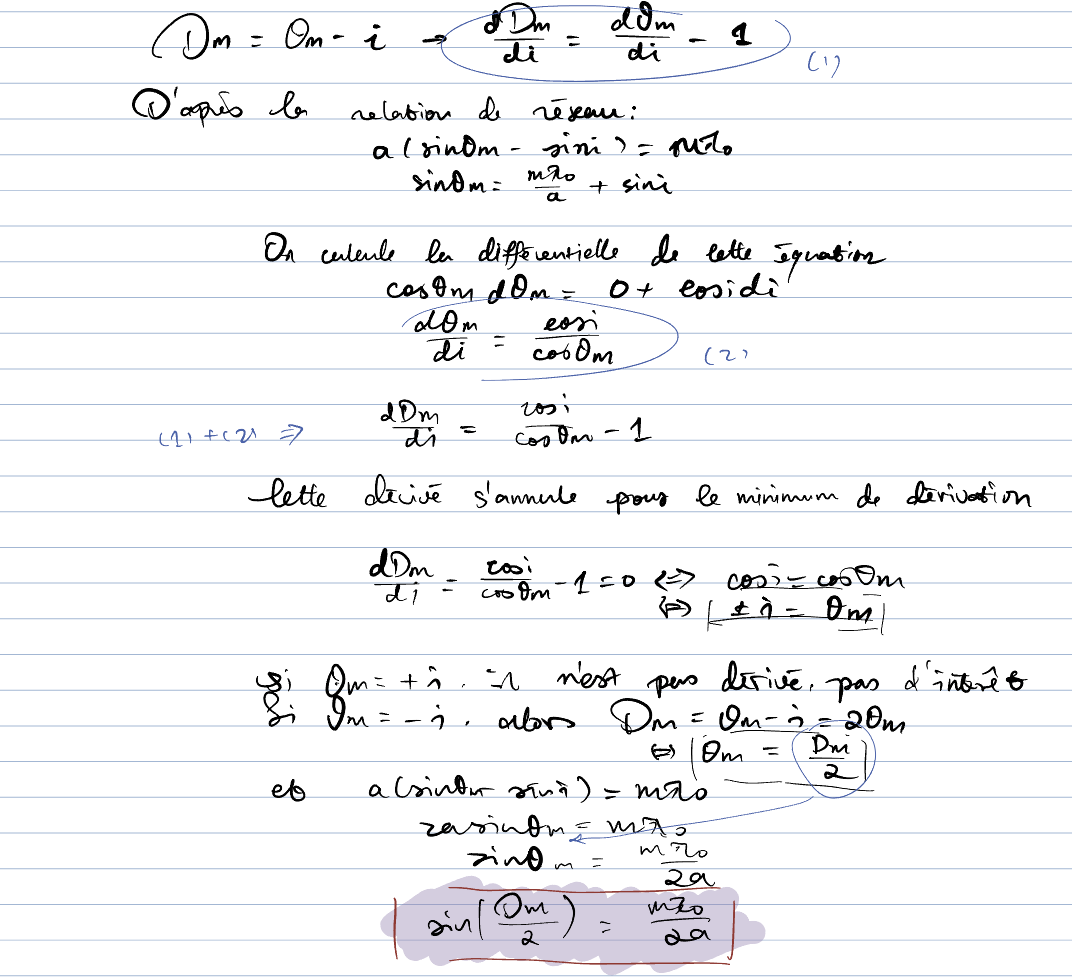 Dm = θm - i → dDm/di = dθm/di - 1 (1)
D'après la relation de réseau:
a(sinθm - sini) = mλ₀
sinθm = mλ₀/a + sini
On calcule la différentielle de cette équation
cosθm dθm = 0 + cosi di
dθm/di = cosi/cosθm (2)
(1)+(2) ⇒ dDm/di = cosi/cosθm - 1
Cette dérivé s'annule pour le minimum de dérivation
dDm/di = cosi/cosθm - 1 = 0 ⇔ cosi = cosθm
⇔ ± i = θm
si θm = + i. il n'est pas dérivé, pas d'intérêt
Si θm = - i. alors Dm = θm - i = 2θm
⇔ θm = Dm/2
et a(sinθm - sini) = mλ₀
2a sinθm = mλ₀
sinθm = mλ₀/2a
sin(Dm/2) = mλ₀/2a